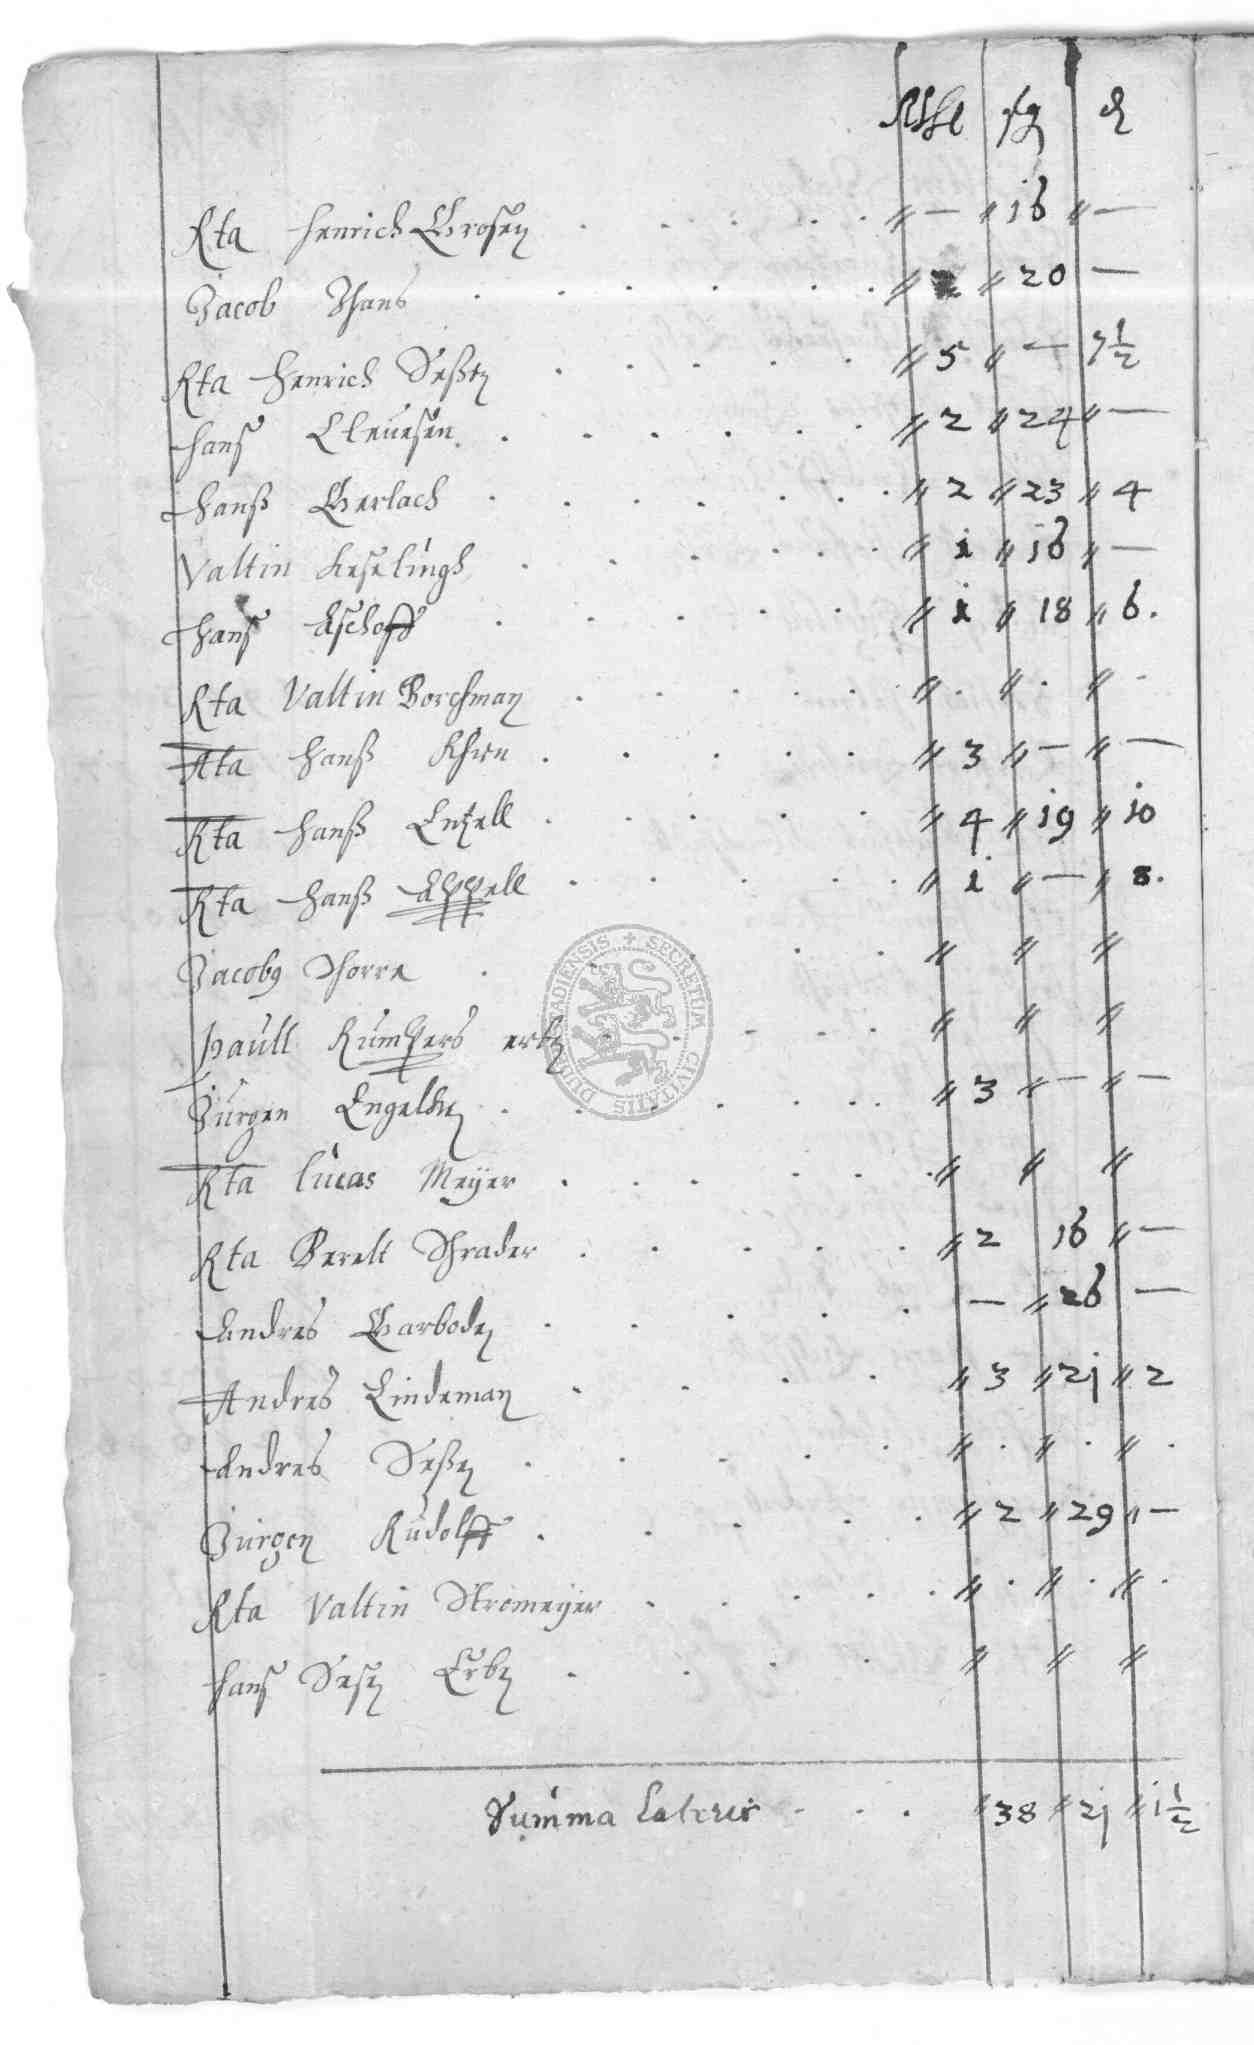 Rthl fg ₰
Rta Henrich Grosen . . . . . . „ — „ 16 „ —
Jacob Thans . . . . . . „ „ 20 —
Rta Henrich Seßen . . . . . „ 5 „ — 7½
Hans Clevesen . . . . . . „ 2 „ 24 „ —
Hanß Gerlach . . . . . . „ 2 „ 23 „ 4
Valtin Keselingh . . . . . „ 1 „ 16 „ —
Hans Aschoff . . . . . „ 1 „ 18 „ 6.
Rta Valtin Borchman . . . . . „ . „ . „ .
Rta Hanß Khten . . . . . „ 3 „ — „ —
Rta Hanß Entzell . . . . . „ 4 „ 19 „ 10
Rta Hanß Appell . . . . . „ 1 „ — „ 8.
Jacobus Thorre . . . „ „ „
Paull Rumpers erben . . . . . „ „ „
Jurgen Engelken . . . . . . „ 3 „ — „ —
Rta Lucas Meyer . . . . . . „ „ „
Rta Berelt Schrader . . . . . „ 2 16 „ —
Andres Garboden . . . . . — „ 26 —
Andres Lindeman . . . . . „ 3 „ 21 „ 2
Andres Seßen . . . . . „ . „ . „ .
Jurgen Rudolff . . . . . „ 2 „ 29 „ —
Rta Valtin Stromeyer . . . . . „ . „ . „ .
Hans Sesen Erben . . . . „ „ „
Summa Lateris . . . „ 38 „ 21 „ 1½
SECRETUM CIVITATIS DUDERSTADIENSIS